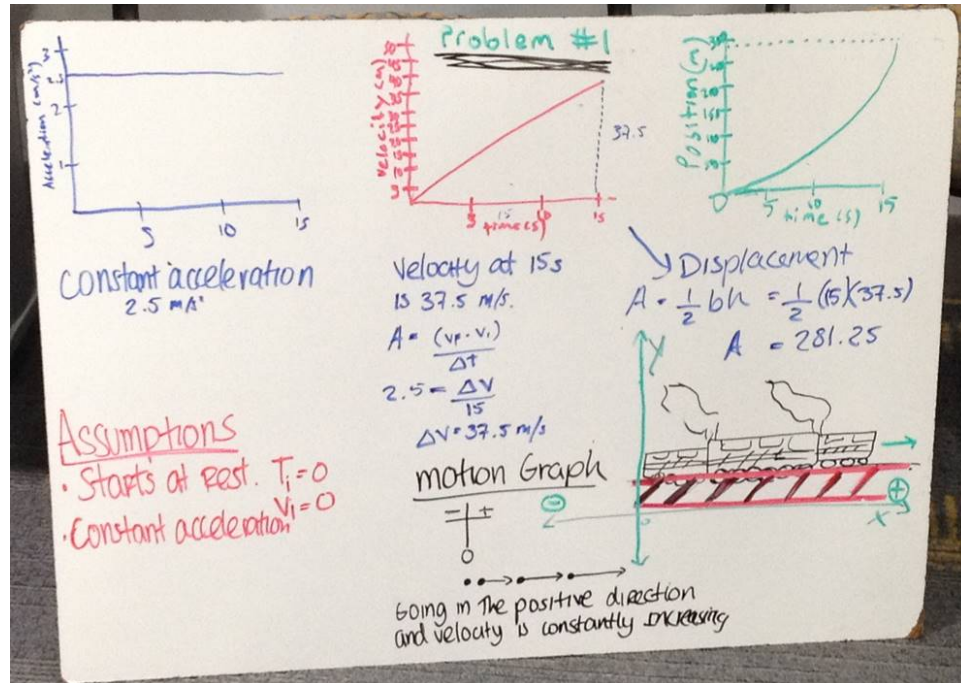 Problem #1
Acceleration (m/s²)
3
2
1
5
10
15
Constant acceleration
2.5 m/s²
Velocity (m)
37.5
5
10
15
15
time (s)
Velocity at 15s
is 37.5 m/s.
A = (vf - vi)
Δt
2.5 = ΔV
15
ΔV = 37.5 m/s
Position (m)
0
5
10
15
time (s)
Displacement
A = 1/2 bh = 1/2 (15)(37.5)
A = 281.25
Assumptions
• Starts at rest. Ti = 0
Vi = 0
• Constant acceleration
motion Graph
- +
0
y
x
- +
Going in the positive direction
and velocity is constantly increasing